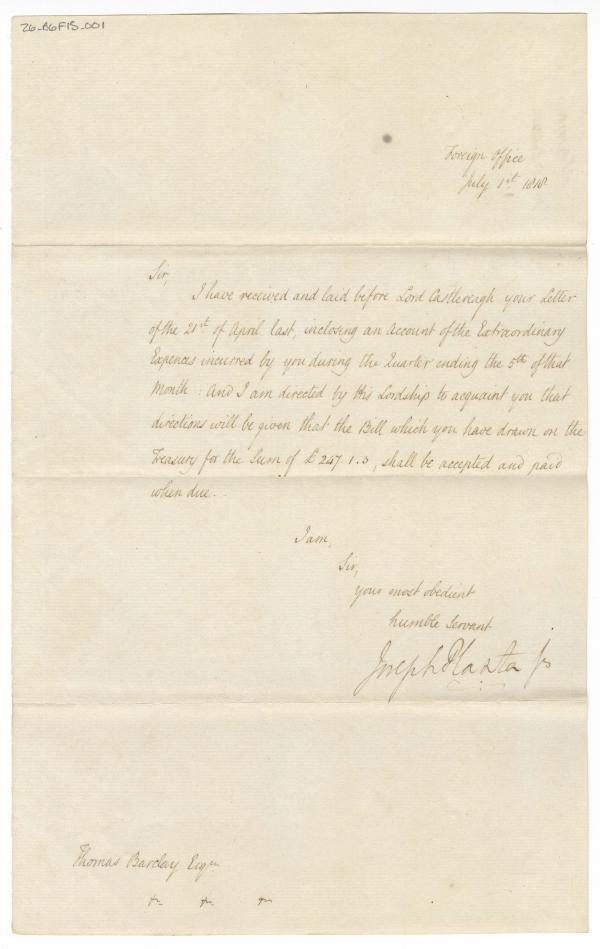 26_B6F15_001
Foreign Office
July 1st 1818
Sir,
I have received and laid before Lord Castlereagh your Letter
of the 21st of April last, inclosing an Account of the Extraordinary
Expences incurred by you during the Quarter ending the 5th of that
Month: And I am directed by His Lordship to acquaint you that
directions will be given that the Bill which you have drawn on the
Treasury for the Sum of £247.1.3, shall be accepted and paid
when due.
I am,
Sir,
your most obedient
humble servant
Joseph Planta Jr
Thomas Barclay Esqre